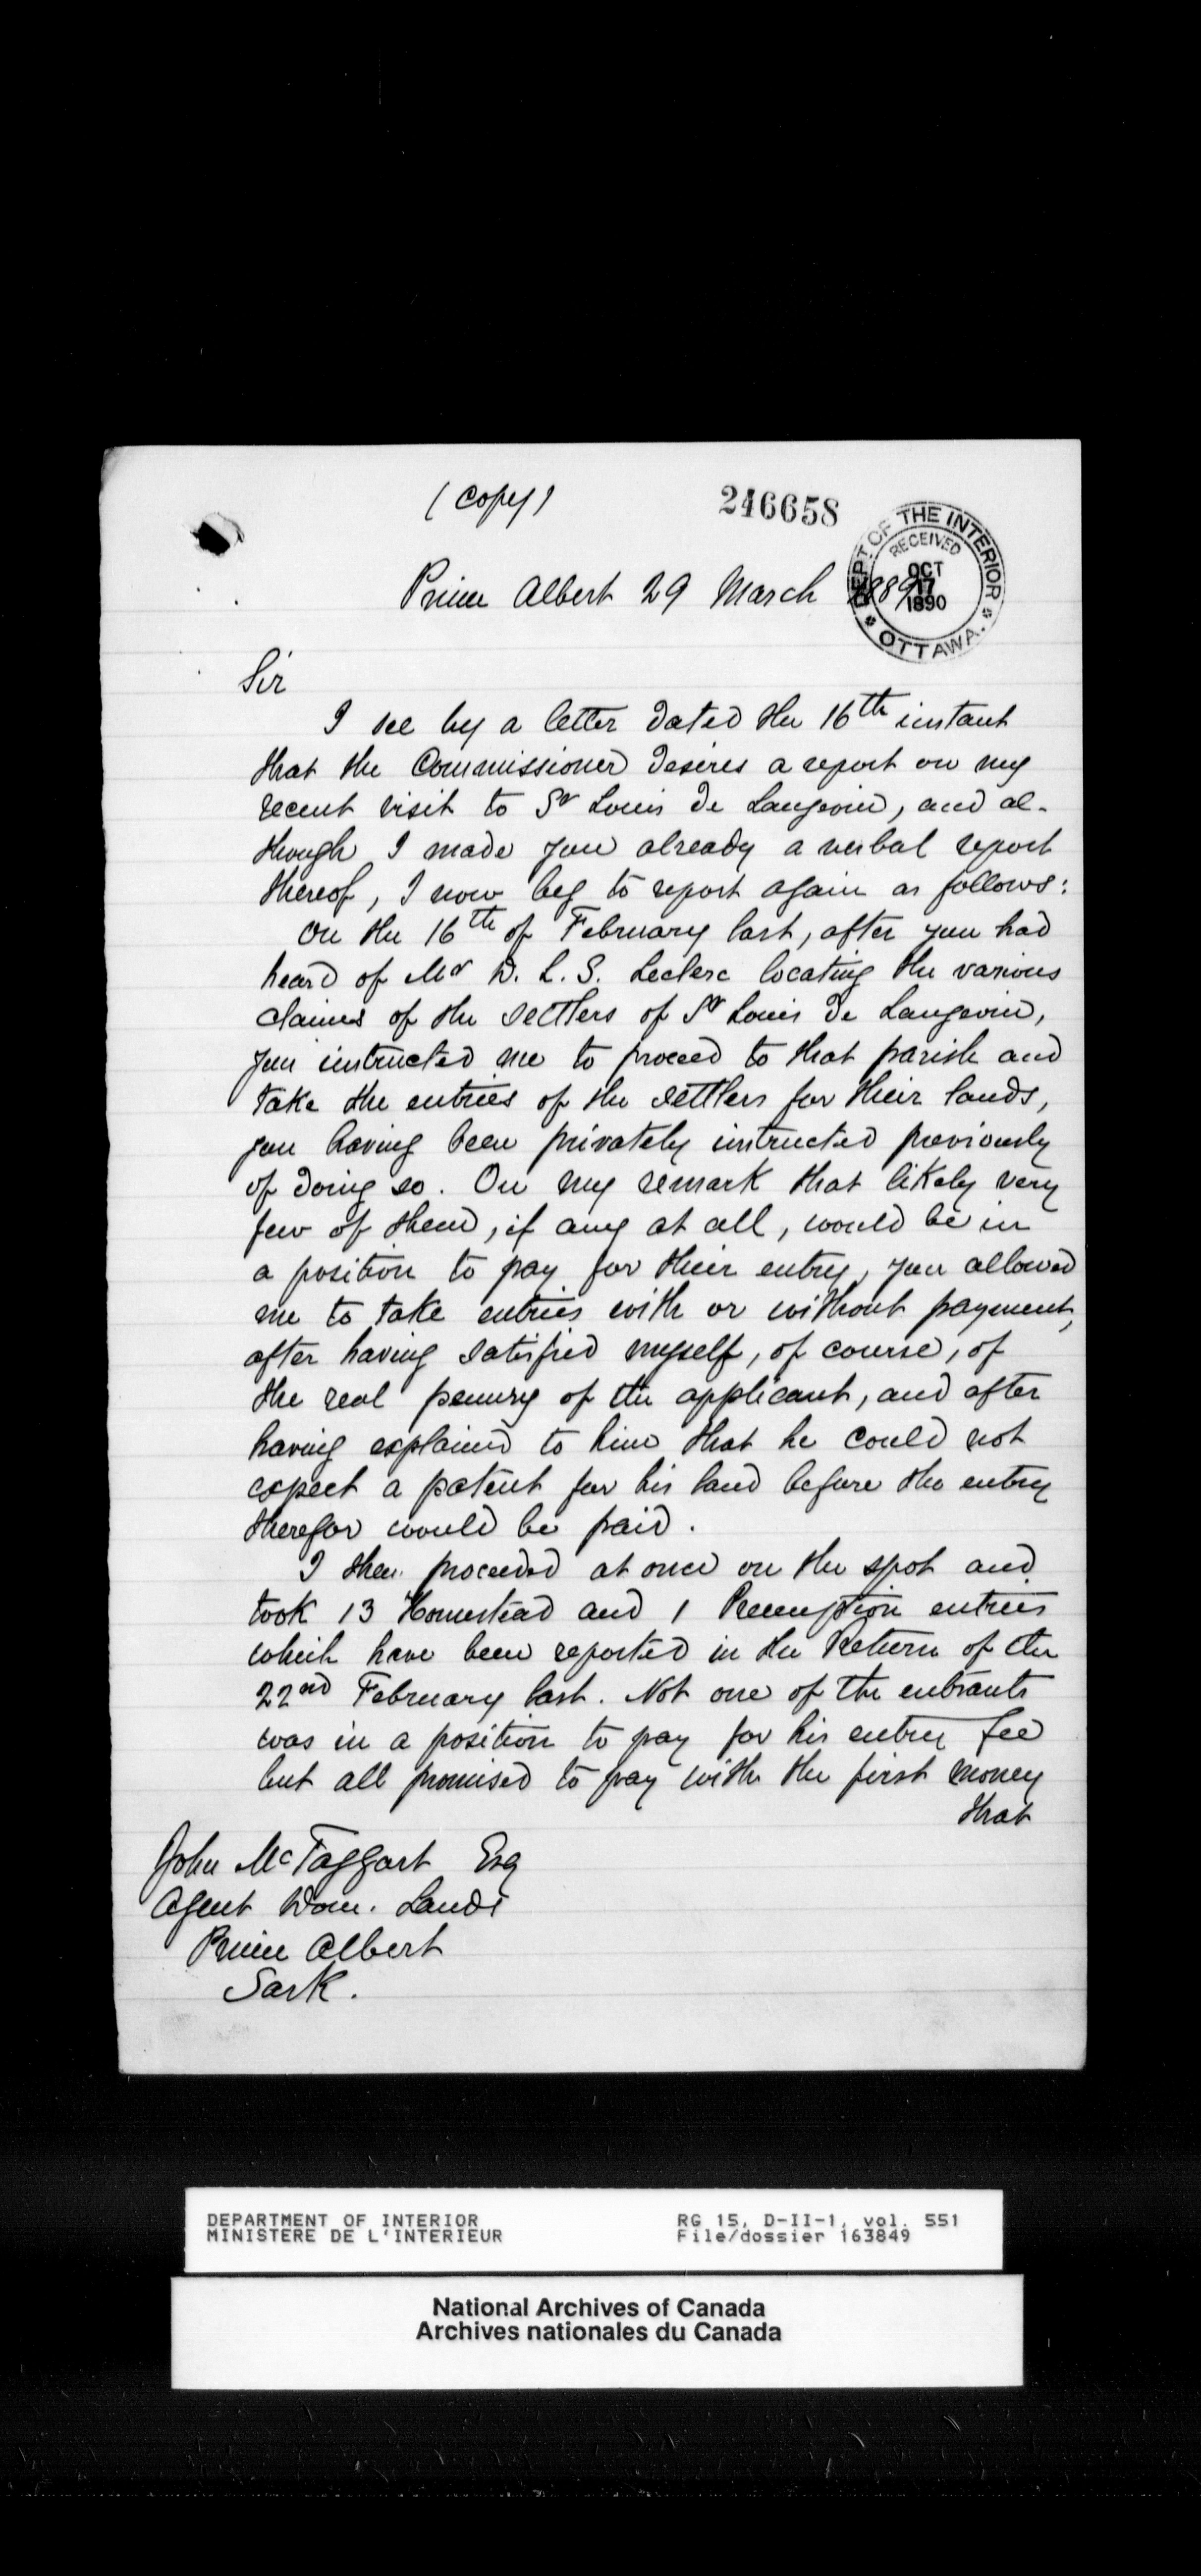 (Copy)
246658
DEPT. OF THE INTERIOR
RECEIVED
OCT
17
1890
OTTAWA.
Prince Albert 29 March 1889
Sir
I see by a letter dated the 16th instant
that the Commissioner desires a report on my
recent visit to St Louis de Langevin, and al-
though I made you already a verbal report
thereof, I now beg to report again as follows:
On the 16th of February last, after you had
heard of Mr D. L. S. Leclerc locating the various
claims of the settlers of St Louis de Langevin,
you instructed me to proceed to that parish and
take the entries of the settlers for their lands,
you having been privately instructed previously
of doing so. On my remark that likely very
few of them, if any at all, would be in
a position to pay for their entry, you allowed
me to take entries with or without payment,
after having satisfied myself, of course, of
the real penury of the applicant, and after
having explained to him that he could not
expect a patent for his land before the entry
therefor would be paid.
I then proceeded at once on the spot and
took 13 Homestead and 1 Preemption entries
which have been reported in the Return of the
22nd February last. Not one of the entrants
was in a position to pay for his entry fee
but all promised to pay with the first money
that
John McTaggart Esq
Agent Dom. Lands
Prince Albert
Sask.
DEPARTMENT OF INTERIOR
MINISTERE DE L'INTERIEUR
RG 15, D-II-1, vol. 551
File/dossier 163849
National Archives of Canada
Archives nationales du Canada